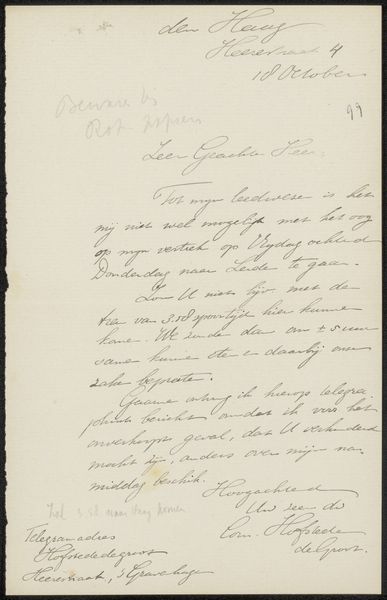 den Haag
Heerestraat 4
18 October
99
Bewaren bij
Rot.
Zeer Geachte Heer,
Tot mijn leedwezen is het
mij niet wel mogelijk met het oog
op mijn vertrek op Vrijdag ochtend
Donderdag naar Leiden te gaan.
Zou U niet bijv. met de
trein van 3.58 spoortijd hier kunnen
komen. We zouden dan om ± 5 uur
samen kunnen eten en daarbij onze
zaken bepraten.
Gaarne ontving ik hierop telegra
phisch bericht omdat ik voor het
onverhoopte geval, dat U verhinderd
mocht zijn, anders over mijn na-
middag beschik.
Hoogachtend
Uw zeer dv
Corn. Hofstede
de Groot.
Zal 3.58 naar Haag komen
Telegramadres
Hofstededegroot
Heerestraat, 's Gravenhage